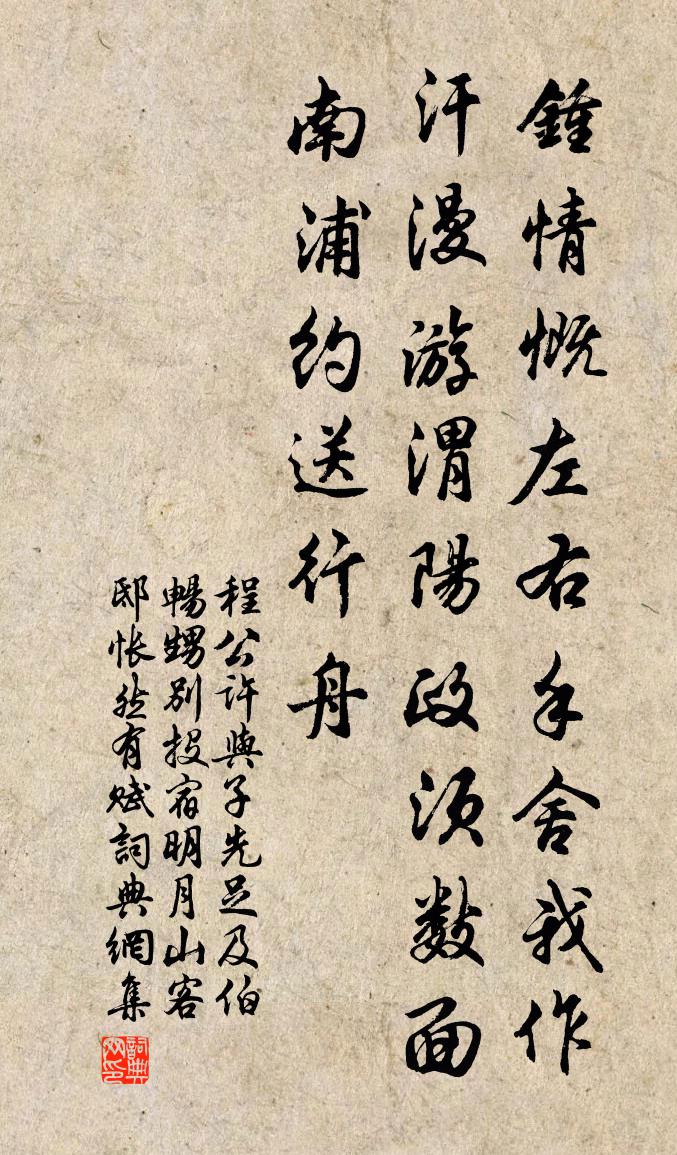 鍾情慨左右手舍我作
汗漫游渭陽政須數面
南浦約送行舟
程公許與子先足及伯
暢甥別投宿明月山客
邸悵然有賦詞典網集
詞典网印